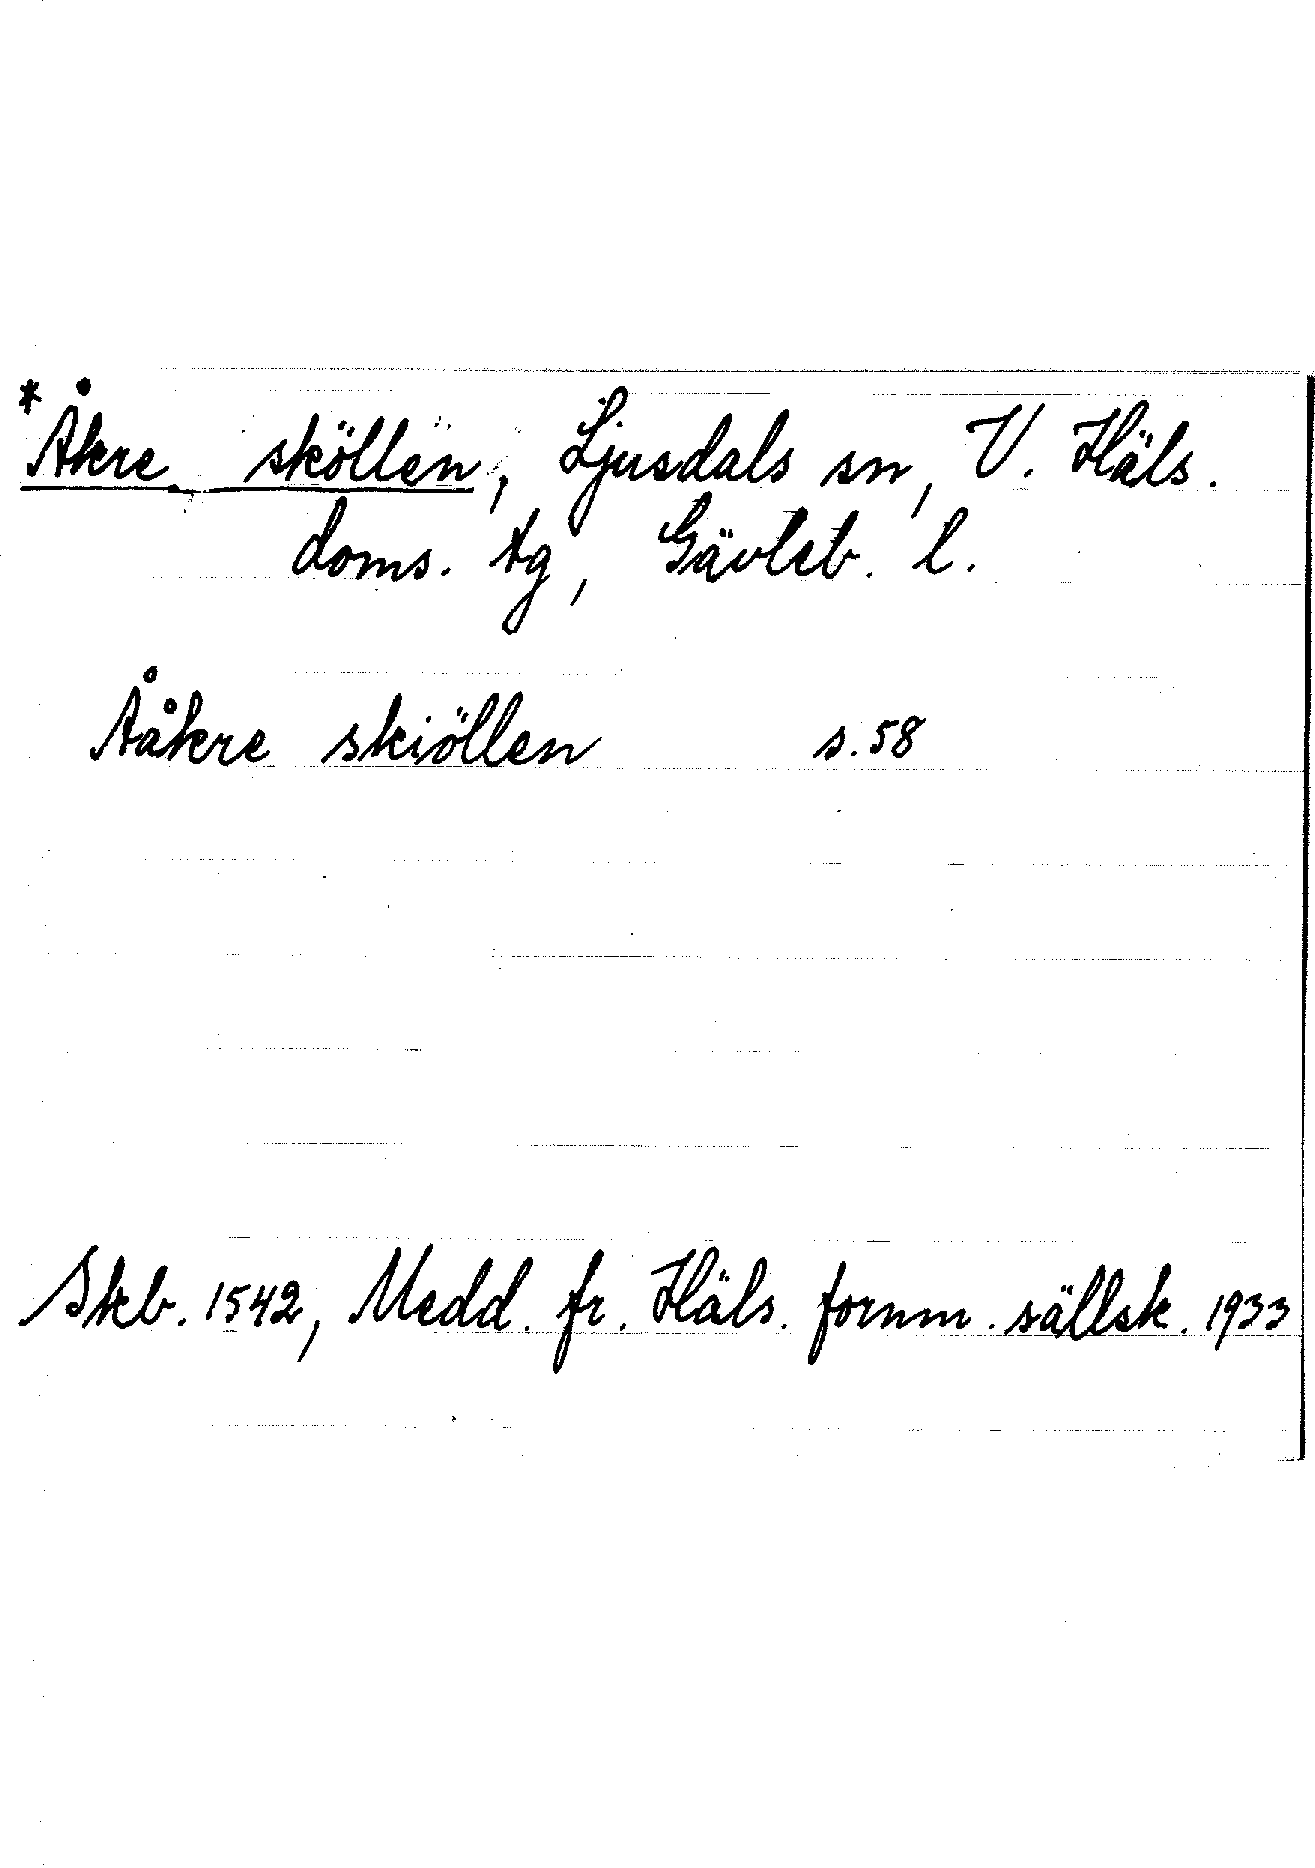 *Åkre sköllen, Ljusdals sn, V. Häls.
doms. tg, Gävleb. l.
Ååkre skiöllen s.58
Skb. 1542, Medd. fr. Häls. fornm. sällsk. 1933